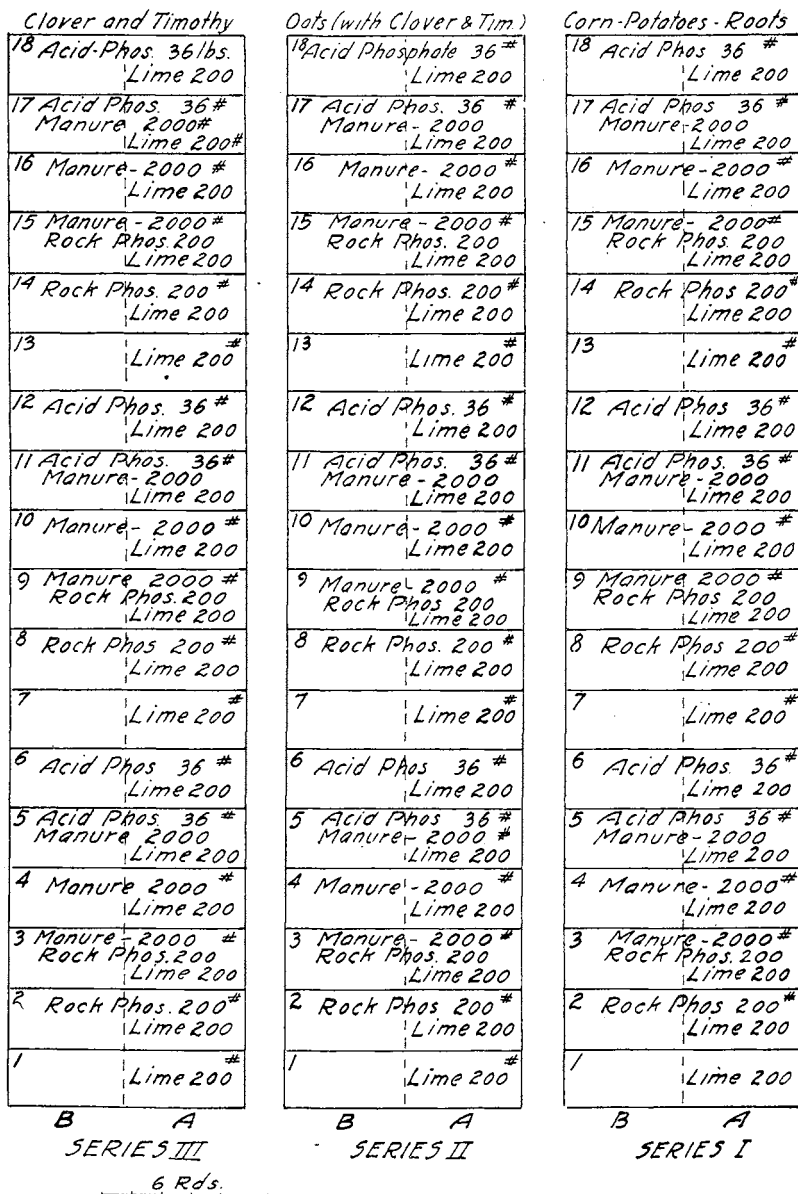 Clover and Timothy
18 Acid-Phos. 36 lbs.
Lime 200
17 Acid Phos. 36#
Manure 2000#
Lime 200#
16 Manure-2000 #
Lime 200
15 Manure-2000#
Rock Phos. 200
Lime 200
14 Rock Phos. 200 #
Lime 200
13 #
Lime 200
12 Acid Phos. 36 #
Lime 200
11 Acid Phos. 36#
Manure-2000
Lime 200
10 Manure- 2000 #
Lime 200
9 Manure 2000 #
Rock Phos. 200
Lime 200
8 Rock Phos 200 #
Lime 200
7 #
Lime 200
6 Acid Phos 36 #
Lime 200
5 Acid Phos. 36 #
Manure 2000
Lime 200
4 Manure 2000 #
Lime 200
3 Manure-2000 #
Rock Phos. 200
Lime 200
2 Rock Phos. 200#
Lime 200
1 #
Lime 200
B A
SERIES III
6 Rds.
Oats (with Clover & Tim.)
18 Acid Phosphate 36 #
Lime 200
17 Acid Phos. 36 #
Manure- 2000
Lime 200
16 Manure- 2000#
Lime 200
15 Manure - 2000 #
Rock Phos. 200
Lime 200
14 Rock Phos. 200#
Lime 200
13 #
Lime 200
12 Acid Phos. 36 #
Lime 200
11 Acid Phos. 36 #
Manure - 2000
Lime 200
10 Manure- 2000 #
Lime 200
9 Manure- 2000 #
Rock Phos 200
Lime 200
8 Rock Phos. 200 #
Lime 200
7 #
Lime 200
6 Acid Phos 36 #
Lime 200
5 Acid Phos 36 #
Manure- 2000 #
Lime 200
4 Manure-2000 #
Lime 200
3 Manure- 2000 #
Rock Phos. 200
Lime 200
2 Rock Phos 200 #
Lime 200
1 #
Lime 200
B A
SERIES II
Corn-Potatoes-Roots
18 Acid Phos 36 #
Lime 200
17 Acid Phos 36 #
Manure-2000
Lime 200
16 Manure-2000 #
Lime 200
15 Manure- 2000#
Rock Phos. 200
Lime 200
14 Rock Phos 200#
Lime 200
13 #
Lime 200
12 Acid Phos 36#
Lime 200
11 Acid Phos. 36 #
Manure-2000
Lime 200
10 Manure- 2000 #
Lime 200
9 Manure 2000 #
Rock Phos 200
Lime 200
8 Rock Phos 200#
Lime 200
7 #
Lime 200
6 Acid Phos. 36#
Lime 200
5 Acid Phos 36#
Manure-2000
Lime 200
4 Manure-2000#
Lime 200
3 Manure-2000#
Rock Phos. 200
Lime 200
2 Rock Phos 200#
Lime 200
1
Lime 200
B A
SERIES I